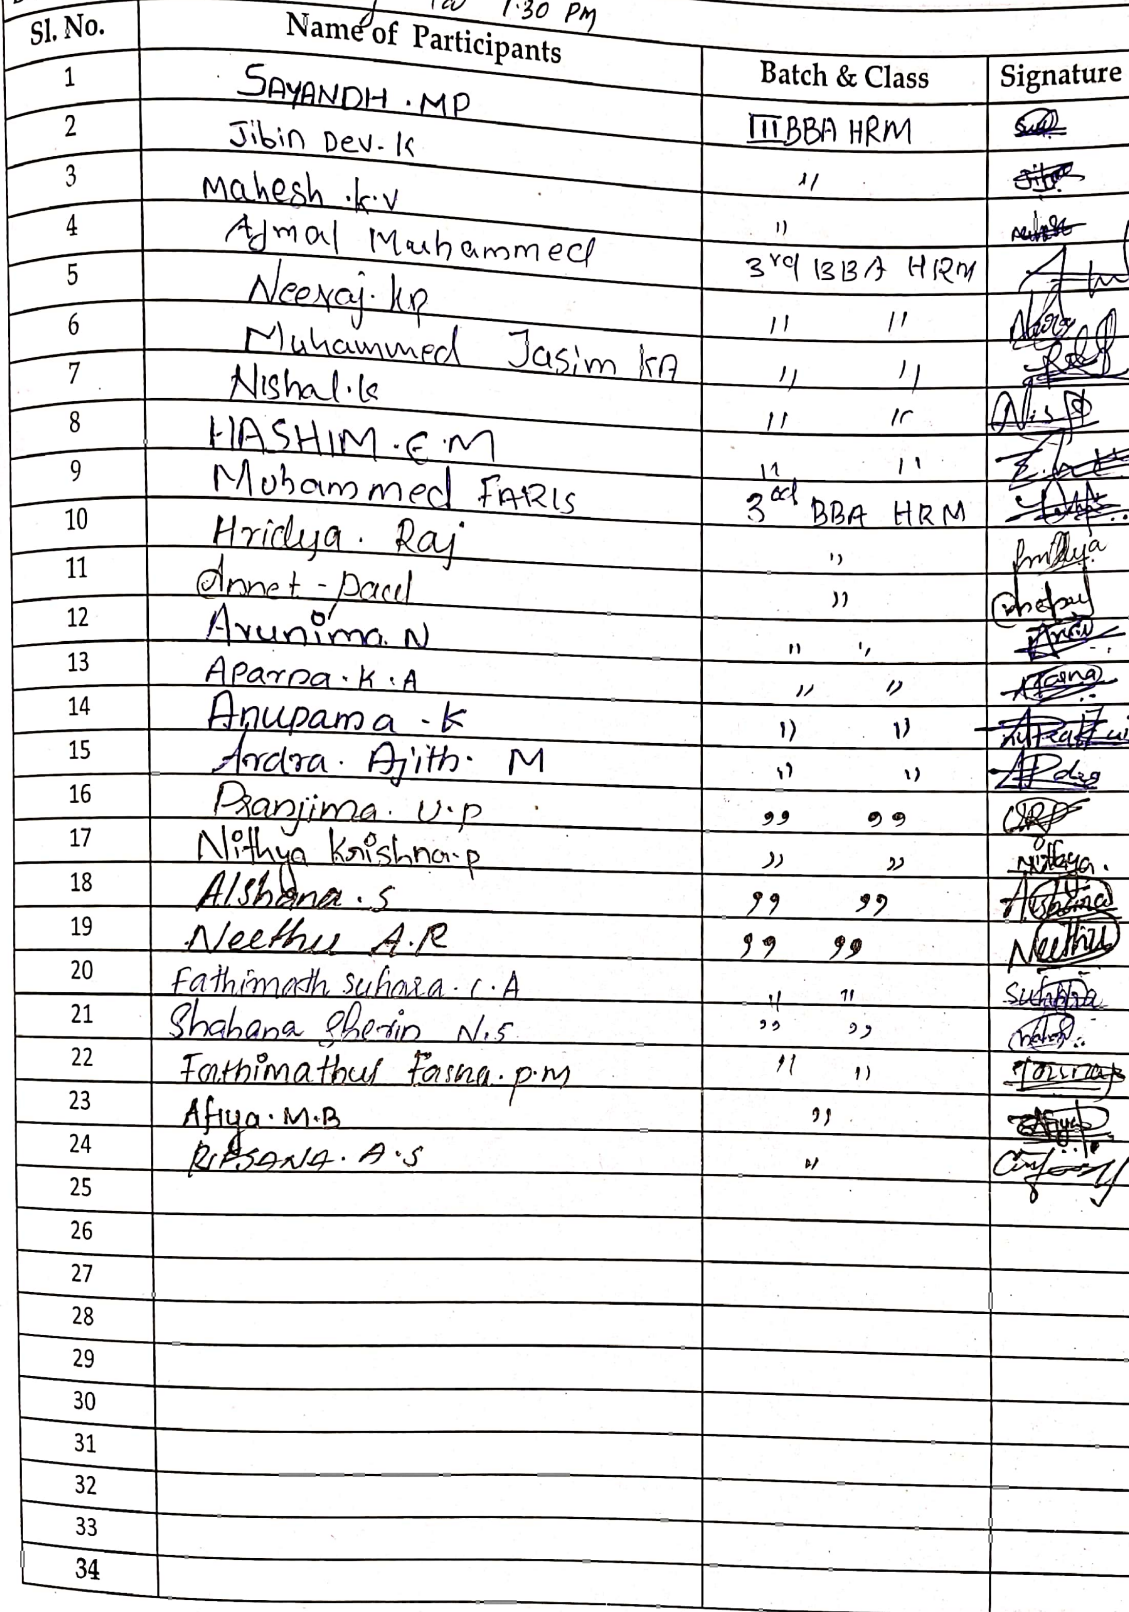 1:30 PM
Sl. No. Name of Participants Batch & Class Signature
1 SAYANDH . MP III BBA HRM
2 Jibin Dev. K "
3 Mahesh . K. V "
4 Ajmal Muhammed 3rd BBA HRM
5 Neeraj. kp " "
6 Muhammed Jasim KA " "
7 Nishal. k " "
8 HASHIM . E . M " "
9 Mohammed FARIS 3rd BBA HRM
10 Hridya . Raj "
11 Annet - paul "
12 Arunima. N " "
13 Aparna . K . A " "
14 Anupama - K " "
15 Ardra . Ajith . M " "
16 Pranjima. U. P " "
17 Nithya Krishna. p " " Nithya.
18 Alshana . S " "
19 Neethu A.R " " Neethu
20 Fathimath suhara . C . A " "
21 Shahana Sherin N.S " "
22 Fathimathul Fasna. p.m " "
23 Afiya. M. B "
24 RIFSANA . A . S "
25
26
27
28
29
30
31
32
33
34